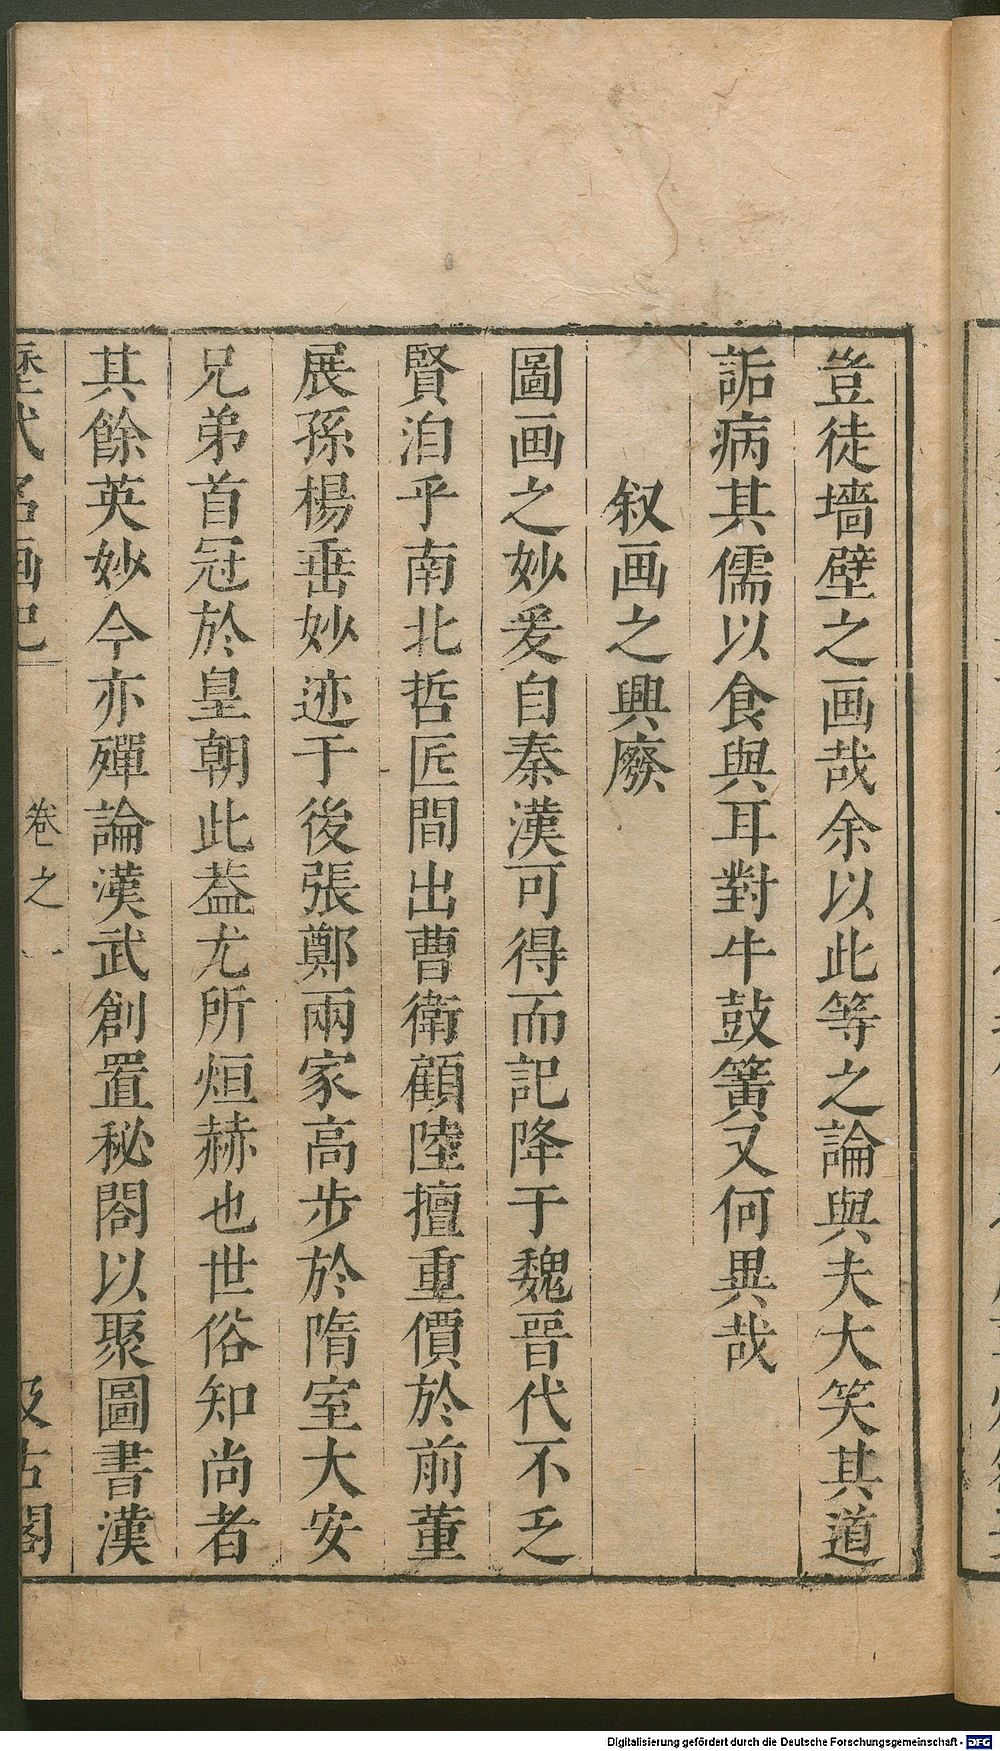 豈徒墻壁之画哉余以此等之論與夫大笑其道
詬病其儒以食與耳對牛鼓簧又何異哉
叙画之興廢
圖画之妙爰自秦漢可得而記降于魏晉代不乏
賢洎乎南北哲匠間出曹衛顧陸擅重價於前董
展孫楊垂妙迹于後張鄭兩家高步於隋室大安
兄弟首冠於皇朝此葢尤所烜赫也世俗知尚者
其餘英妙今亦殫論漢武創置秘閣以聚圖書漢
歷代名画記
卷之一
汲古閣
Digitalisierung gefördert durch die Deutsche Forschungsgemeinschaft - DFG